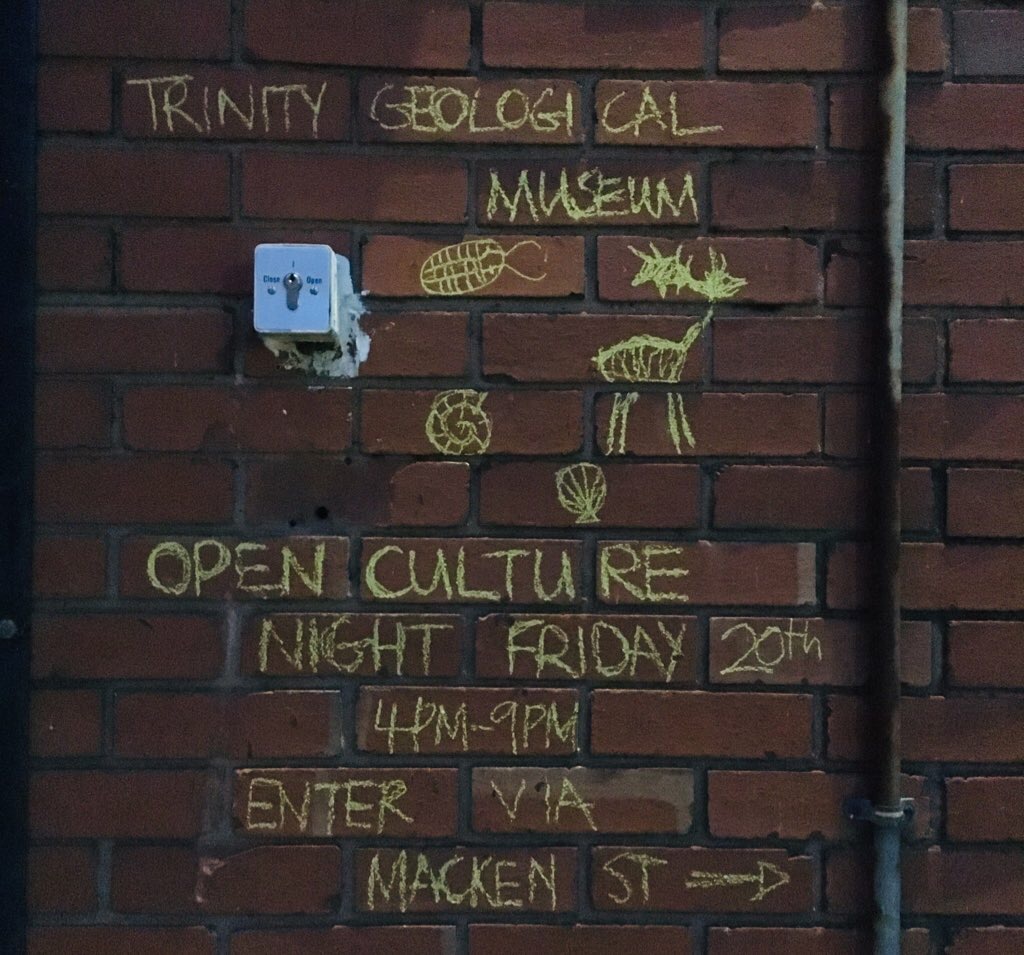 TRINITY GEOLOGICAL
MUSEUM
Close Open
OPEN CULTURE
NIGHT FRIDAY 20th
4PM-9PM
ENTER VIA
MACKEN ST →